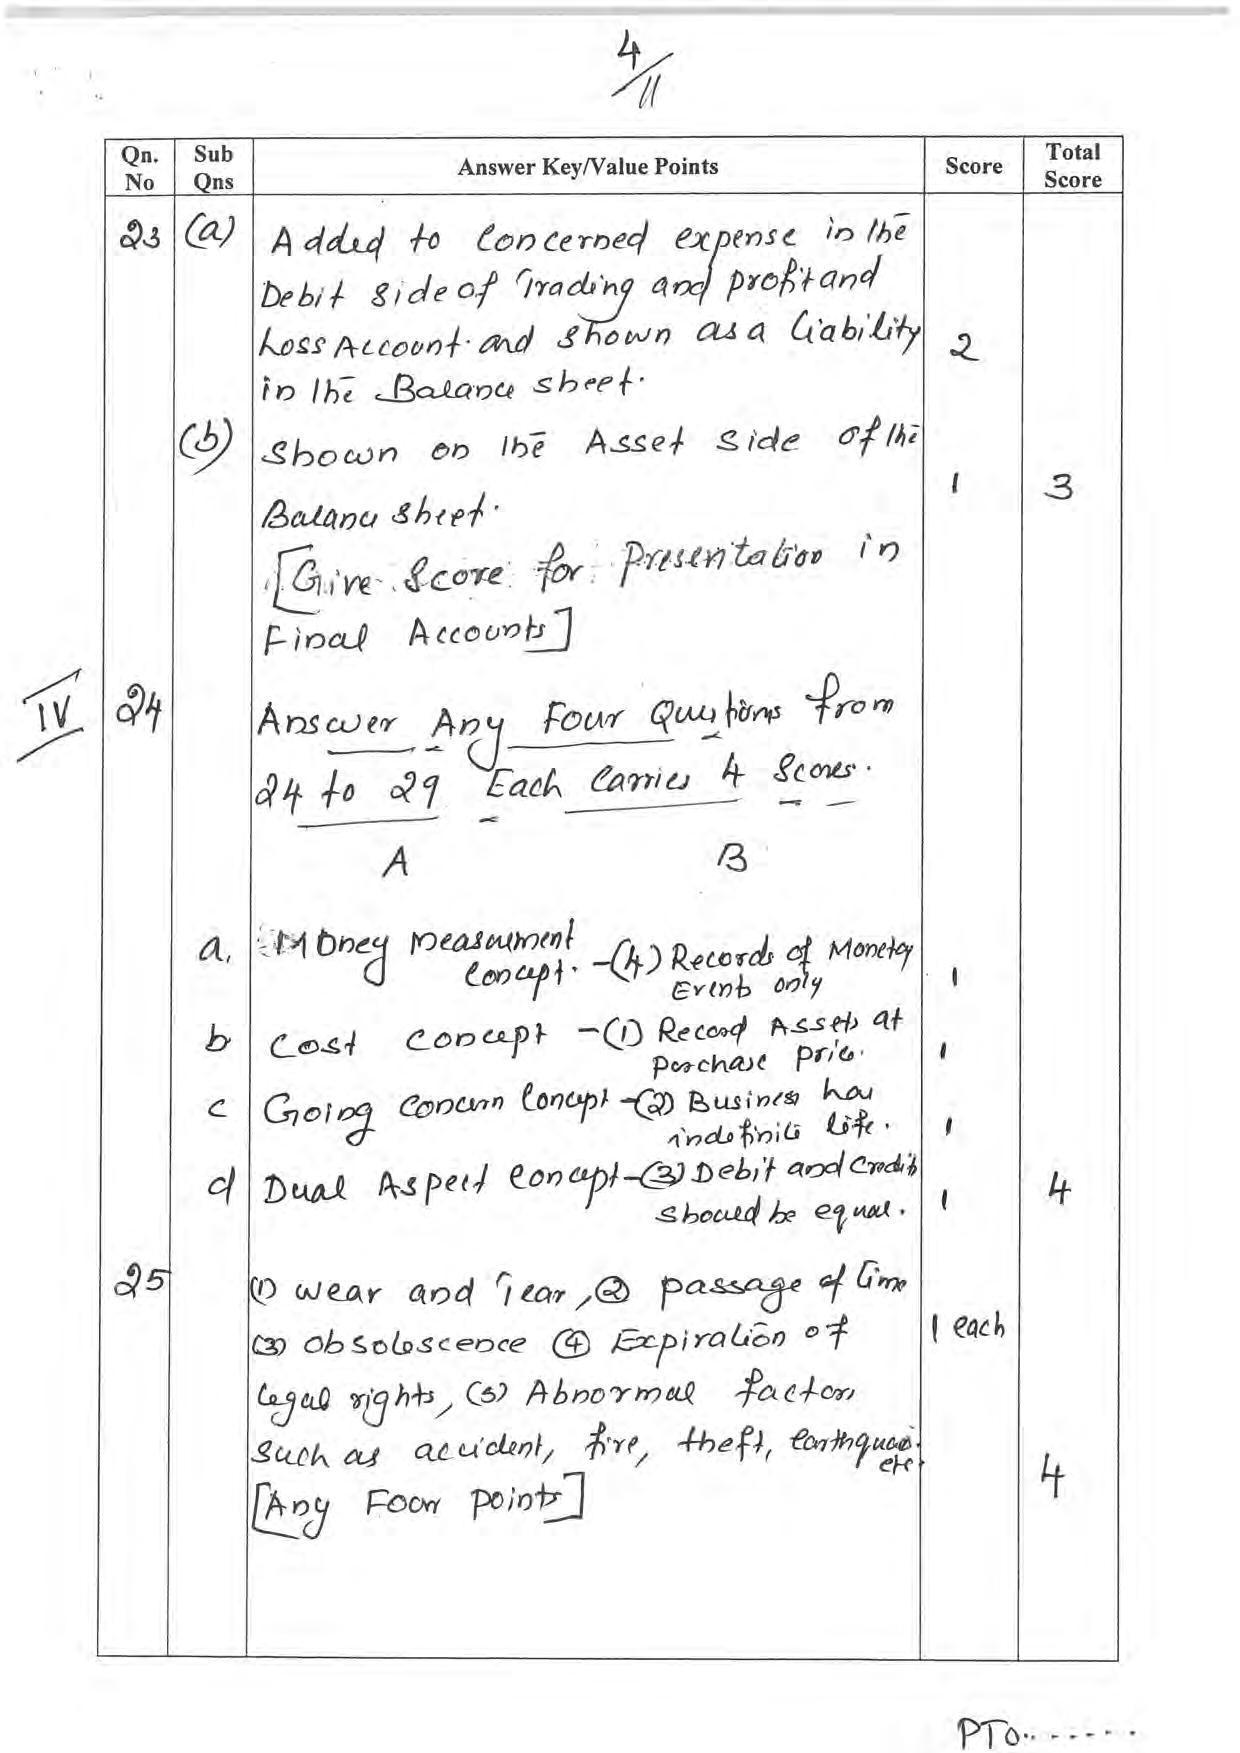 4/11
Qn. No Sub Qns Answer Key/Value Points Score Total Score
23 (a) Added to Concerned expense in the
Debit side of Trading and profit and
Loss Account. and shown as a liability 2
in the Balance sheet.
(b) Shown on the Asset side of the
Balance sheet. 1 3
[Give Score for Presentation in
Final Accounts]
IV 24 Answer Any Four Questions from
24 to 29 Each Carries 4 Scores.
A B
a. Money measurement concept. -(4) Records of Monetary Events only 1
b Cost concept -(1) Record Assets at purchase price. 1
c Going Concern Concept -(2) Business has indefinite life. 1
d Dual Aspect Concept -(3) Debit and Credit should be equal. 1 4
25 (1) wear and Tear, (2) passage of time
(3) Obsolescence (4) Expiration of 1 each
legal rights, (5) Abnormal factors
such as accident, fire, theft, earthquake etc. 4
[Any Four points]
PTO.......